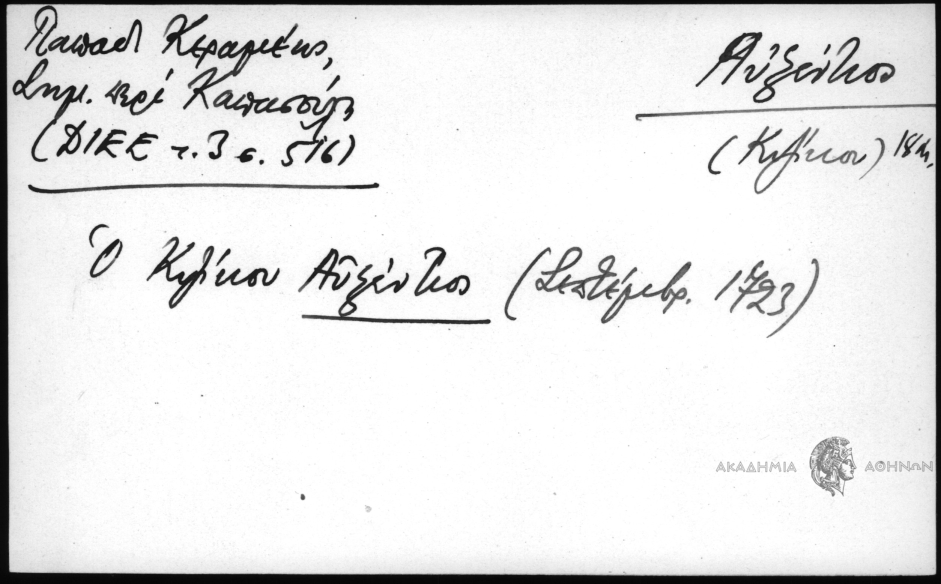 Παπαδ Κεραμέως,
Σημ. περί Καπασούλη
(ΔΙΕΕ τ. 3 σ. 516)
Αὐξέντιος
(Κυζίκου) 18 αι.
Ὁ Κυζίκου Αὐξέντιος (Σεπτέμβρ. 1723)
ΑΚΑΔΗΜΙΑ ΑΘΗΝΩΝ